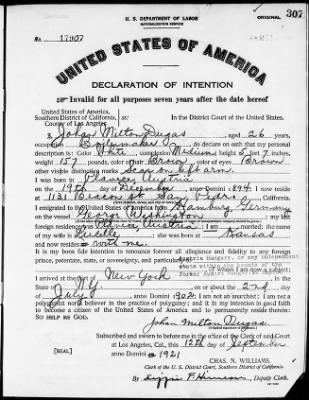 U. S. DEPARTMENT OF LABOR
NATURALIZATION SERVICE
ORIGINAL 307
No. 12907
UNITED STATES OF AMERICA
DECLARATION OF INTENTION
Invalid for all purposes seven years after the date hereof
United States of America,
Southern District of California, ss:
County of Los Angeles
In the District Court of the United States.
I, Johan Milton Dugas, aged 26 years,
occupation Boilermaker, do declare on oath that my personal
description is: Color White, complexion Medium, height 5 feet 7 inches,
weight 157 pounds, color of hair Brown, color of eyes Brown
other visible distinctive marks Scar on left arm.
I was born in Austria
on the 19th day of December, anno Domini 1894; I now reside
at 1131 St. San Pedro
I emigrated to the United States of America from Hamburg, Germany
on the vessel George Washington; my last
foreign residence was Austria; I am married; the name
of my wife is; she was born at Kansas
and now resides with me.
It is my bona fide intention to renounce forever all allegiance and fidelity to any foreign
prince, potentate, state, or sovereignty, and particularly to Austria Hungary, or any independent
state within the bounds of the
former Austro Hungarian
of whom I am now a subject;
I arrived at the port of New York, in the
State of N.Y., on or about the 2nd day
of July, anno Domini 1902; I am not an anarchist; I am not a
polygamist nor a believer in the practice of polygamy; and it is my intention in good faith
to become a citizen of the United States of America and to permanently reside therein:
SO HELP ME GOD.
Johan Milton Dugas.
Subscribed and sworn to before me in the office of the Clerk of said Court
at Los Angeles, Cal., this 12th day of September
[SEAL]
anno Domini 1921
CHAS. N. WILLIAMS,
Clerk of the U. S. District Court, Southern District of California.
By, Deputy Clerk.